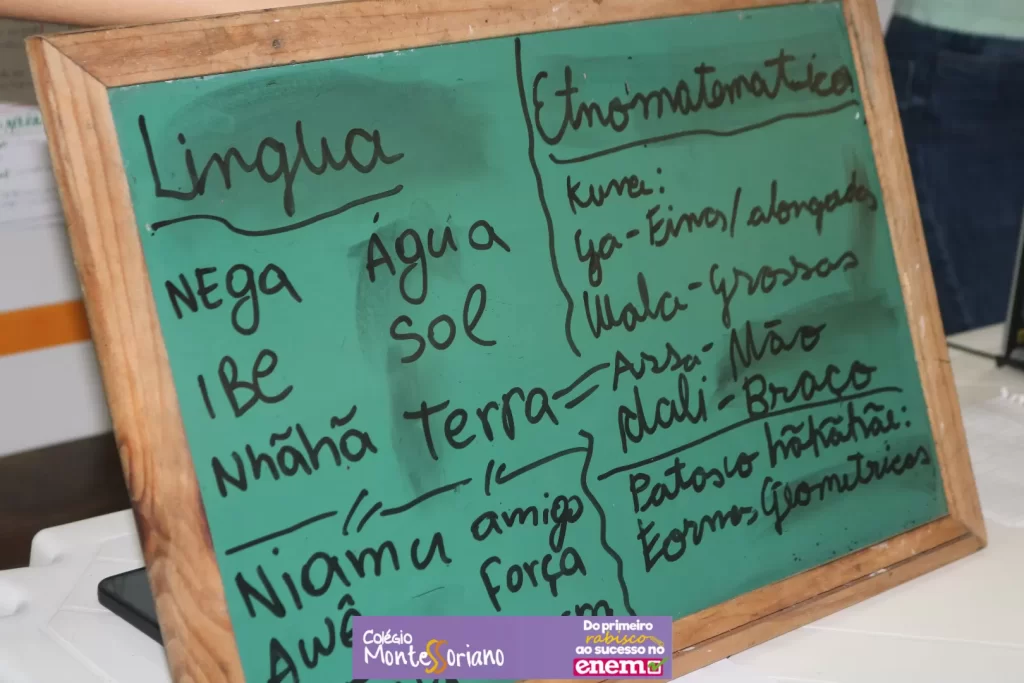 Língua
NEga Água
IBE Sol
Nhãhã Terra
Niamu amigo
Awê Força
Etnomatematica
Kuna:
ya-Finos/alongados
Wala-grossas
Arsa-Mão
dali-Braço
Patosco hãhãhãe:
Formas Geometricas
Colégio
Montessoriano
Do primeiro
rabisco
ao sucesso no
enem